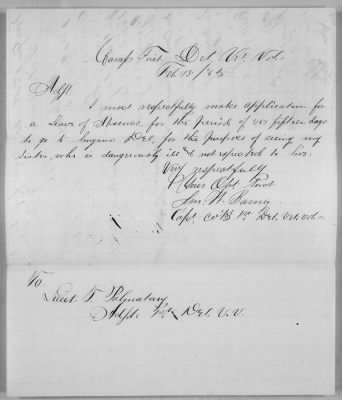 Camp First Del. Vet. Vols.
Feb 13th/65
Adjt.
I most respectfully make application for
a Leave of Absence, for the period of fifteen days
to go to Del, for the purpose of seeing my
sister, who is dangerously ill & not expected to live.
Very respectfully
Your Obt. Servt
Jno. W.
Capt. Co B 1st Del. Vet. Vols.
To
Lieut. F. Palmatary
Adjt. 1st Del. V. V.